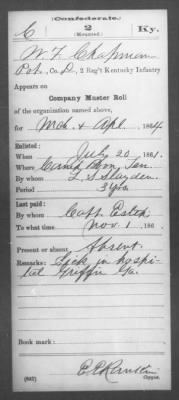 Confederate.
C 2 Ky.
(Mounted.)
W. F. Chapman
Pvt., Co. D, 2 Reg't Kentucky Infantry
Appears on
Company Muster Roll
of the organization named above,
for Mch & Apl, 1864.
Enlisted:
When July 20, 1861.
Where Camp Boone, Ten.
By whom
Period 3 yrs.
Last paid:
By whom Capt. Estep
To what time Nov. 1, 186
Present or absent Absent.
Remarks: Sick in hospi-
tal Griffin Ga.
Book mark:
(642)
Copyist.